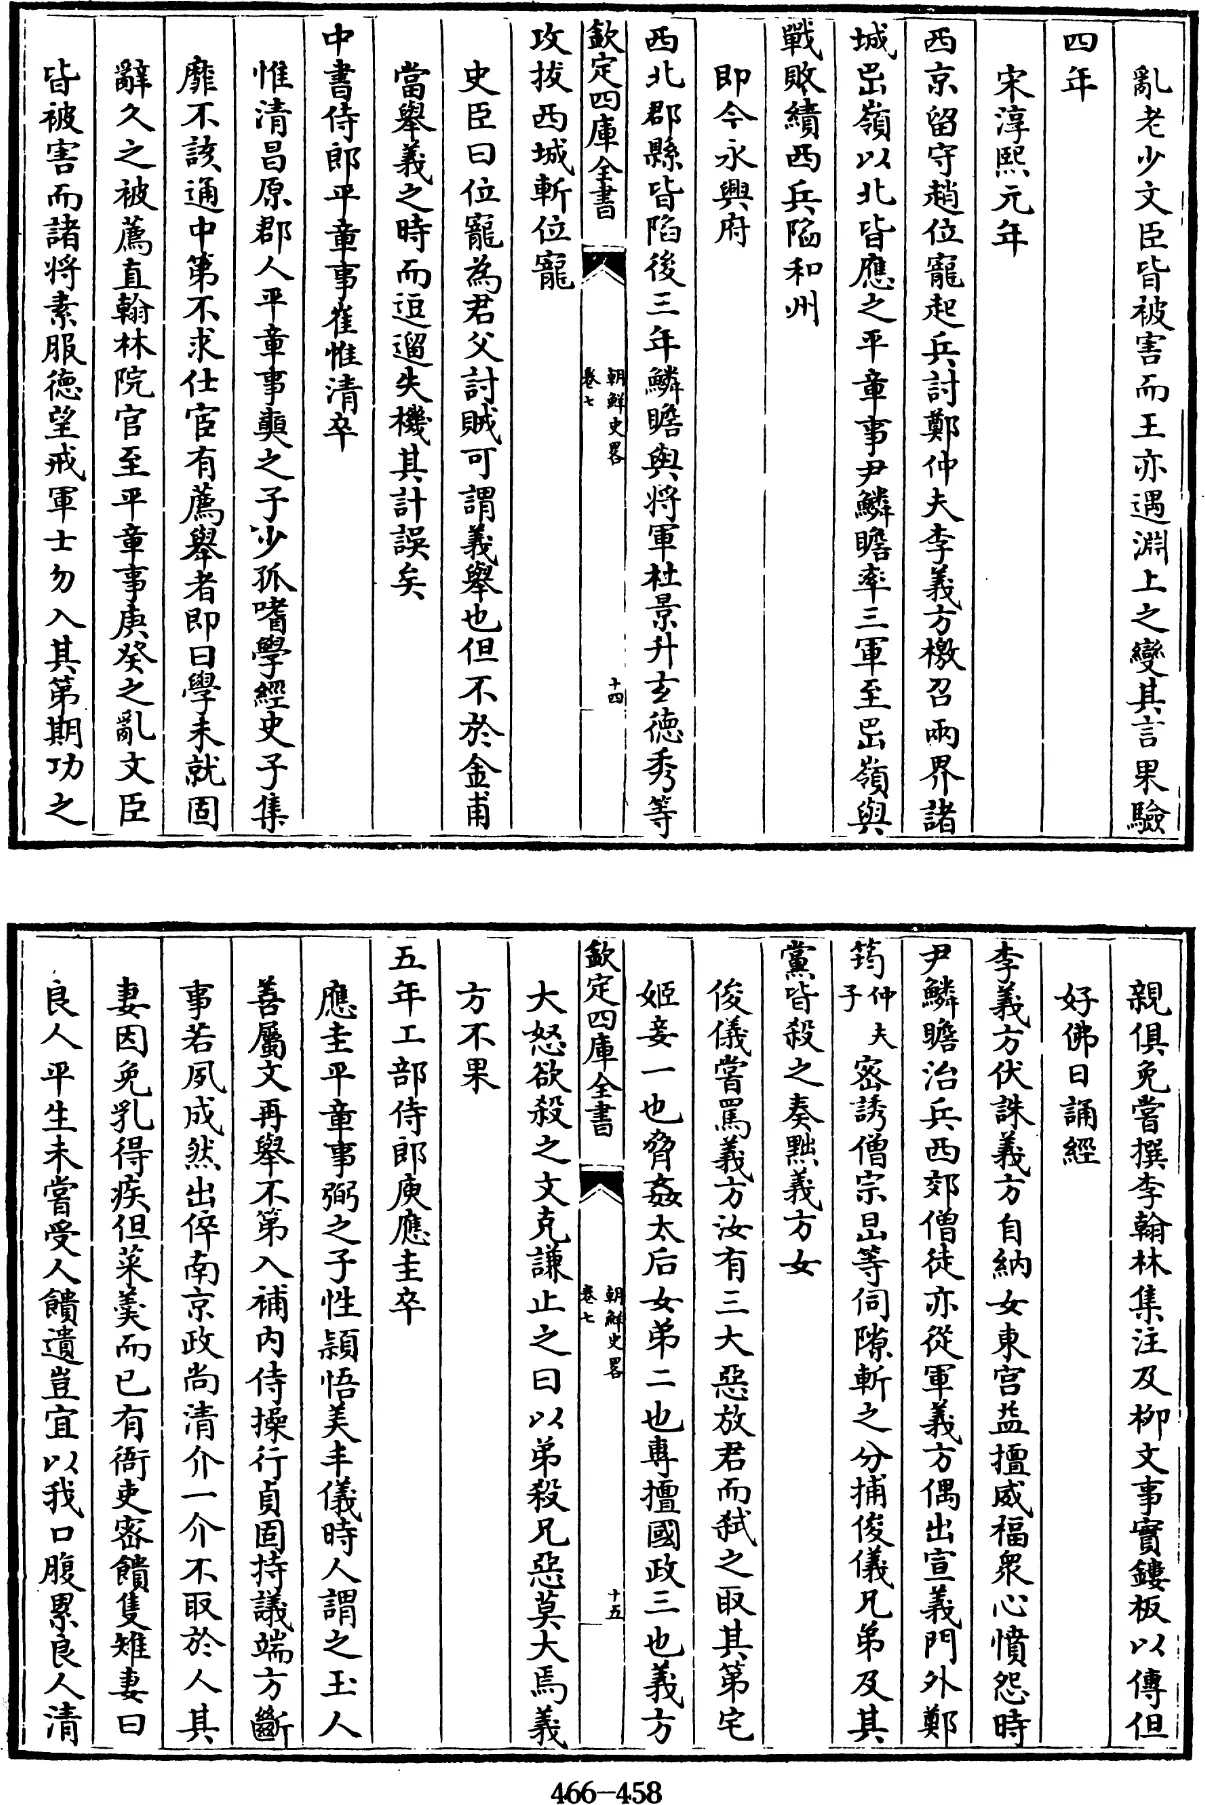 亂老少文臣皆被害而王亦遇淵上之變其言果驗
四年
宋淳熙元年
西京留守趙位寵起兵討鄭仲夫李義方檄召兩界諸
城岊嶺以北皆應之平章事尹鱗瞻率三軍至岊嶺與
戰敗績西兵陷和州
即今永興府
西北郡縣皆陷後三年鱗瞻與將軍杜景升玄德秀等
欽定四庫全書
朝鮮史畧
卷七
十四
攻拔西城斬位寵
史臣曰位寵為君父討賊可謂義舉也但不於金甫
當舉義之時而逗遛失機其計誤矣
中書侍郎平章事崔惟清卒
惟清昌原郡人平章事奭之子少孤嗜學經史子集
靡不該通中第不求仕宦有薦舉者即曰學未就固
辭久之被薦直翰林院官至平章事庚癸之亂文臣
皆被害而諸將素服德望戒軍士勿入其第期功之
親俱免嘗撰李翰林集注及柳文事實鏤板以傳但
好佛日誦經
李義方伏誅義方自納女東宮益擅威福衆心憤怨時
尹鱗瞻治兵西郊僧徒亦從軍義方偶出宣義門外鄭
筠仲夫子密誘僧宗旵等伺隙斬之分捕俊儀兄弟及其
黨皆殺之奏黜義方女
俊儀嘗罵義方汝有三大惡放君而弑之取其第宅
姬妾一也脅姦太后女弟二也專擅國政三也義方
欽定四庫全書
朝鮮史畧
卷七
十五
大怒欲殺之文克謙止之曰以弟殺兄惡莫大焉義
方不果
五年工部侍郎庾應圭卒
應圭平章事弼之子性穎悟美丰儀時人謂之玉人
善屬文再舉不第入補內侍操行貞固持議端方斷
事若夙成然出倅南京政尚清介一介不取於人其
妻因免乳得疾但菜羹而已有衙吏密饋隻雉妻曰
良人平生未嘗受人饋遺豈宜以我口腹累良人清
466—458